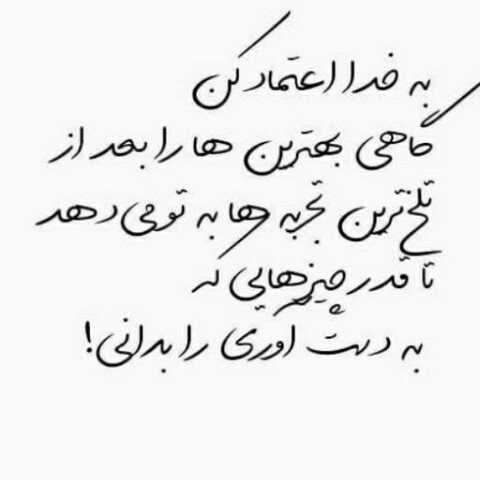 به خدا اعتماد کن
گاهی بهترین ها را بعد از
تلخ ترین تجربه ها به تو می دهد
تا قدر چیزهایی که
به دست اوری را بدانی!